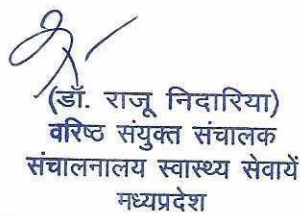 (डॉ. राजू निदारिया)
वरिष्ठ संयुक्त संचालक
संचालनालय स्वास्थ्य सेवायें
मध्यप्रदेश